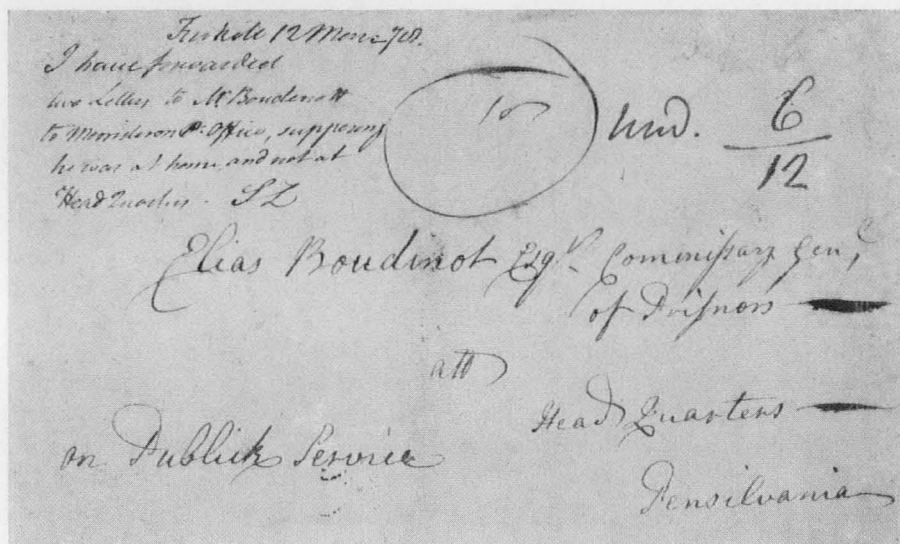 Fishkill 12 March 78.
I have forwarded
two Letters to Mr Boudenott
to Morristown P. Office, supposing
he was at home, and not at
Head Quarters. S L
6
12
Elias Boudinot Esqr. Commissary Genl,
of Prisnors
att
Head Quarters
on Publick Service
Pensilvania